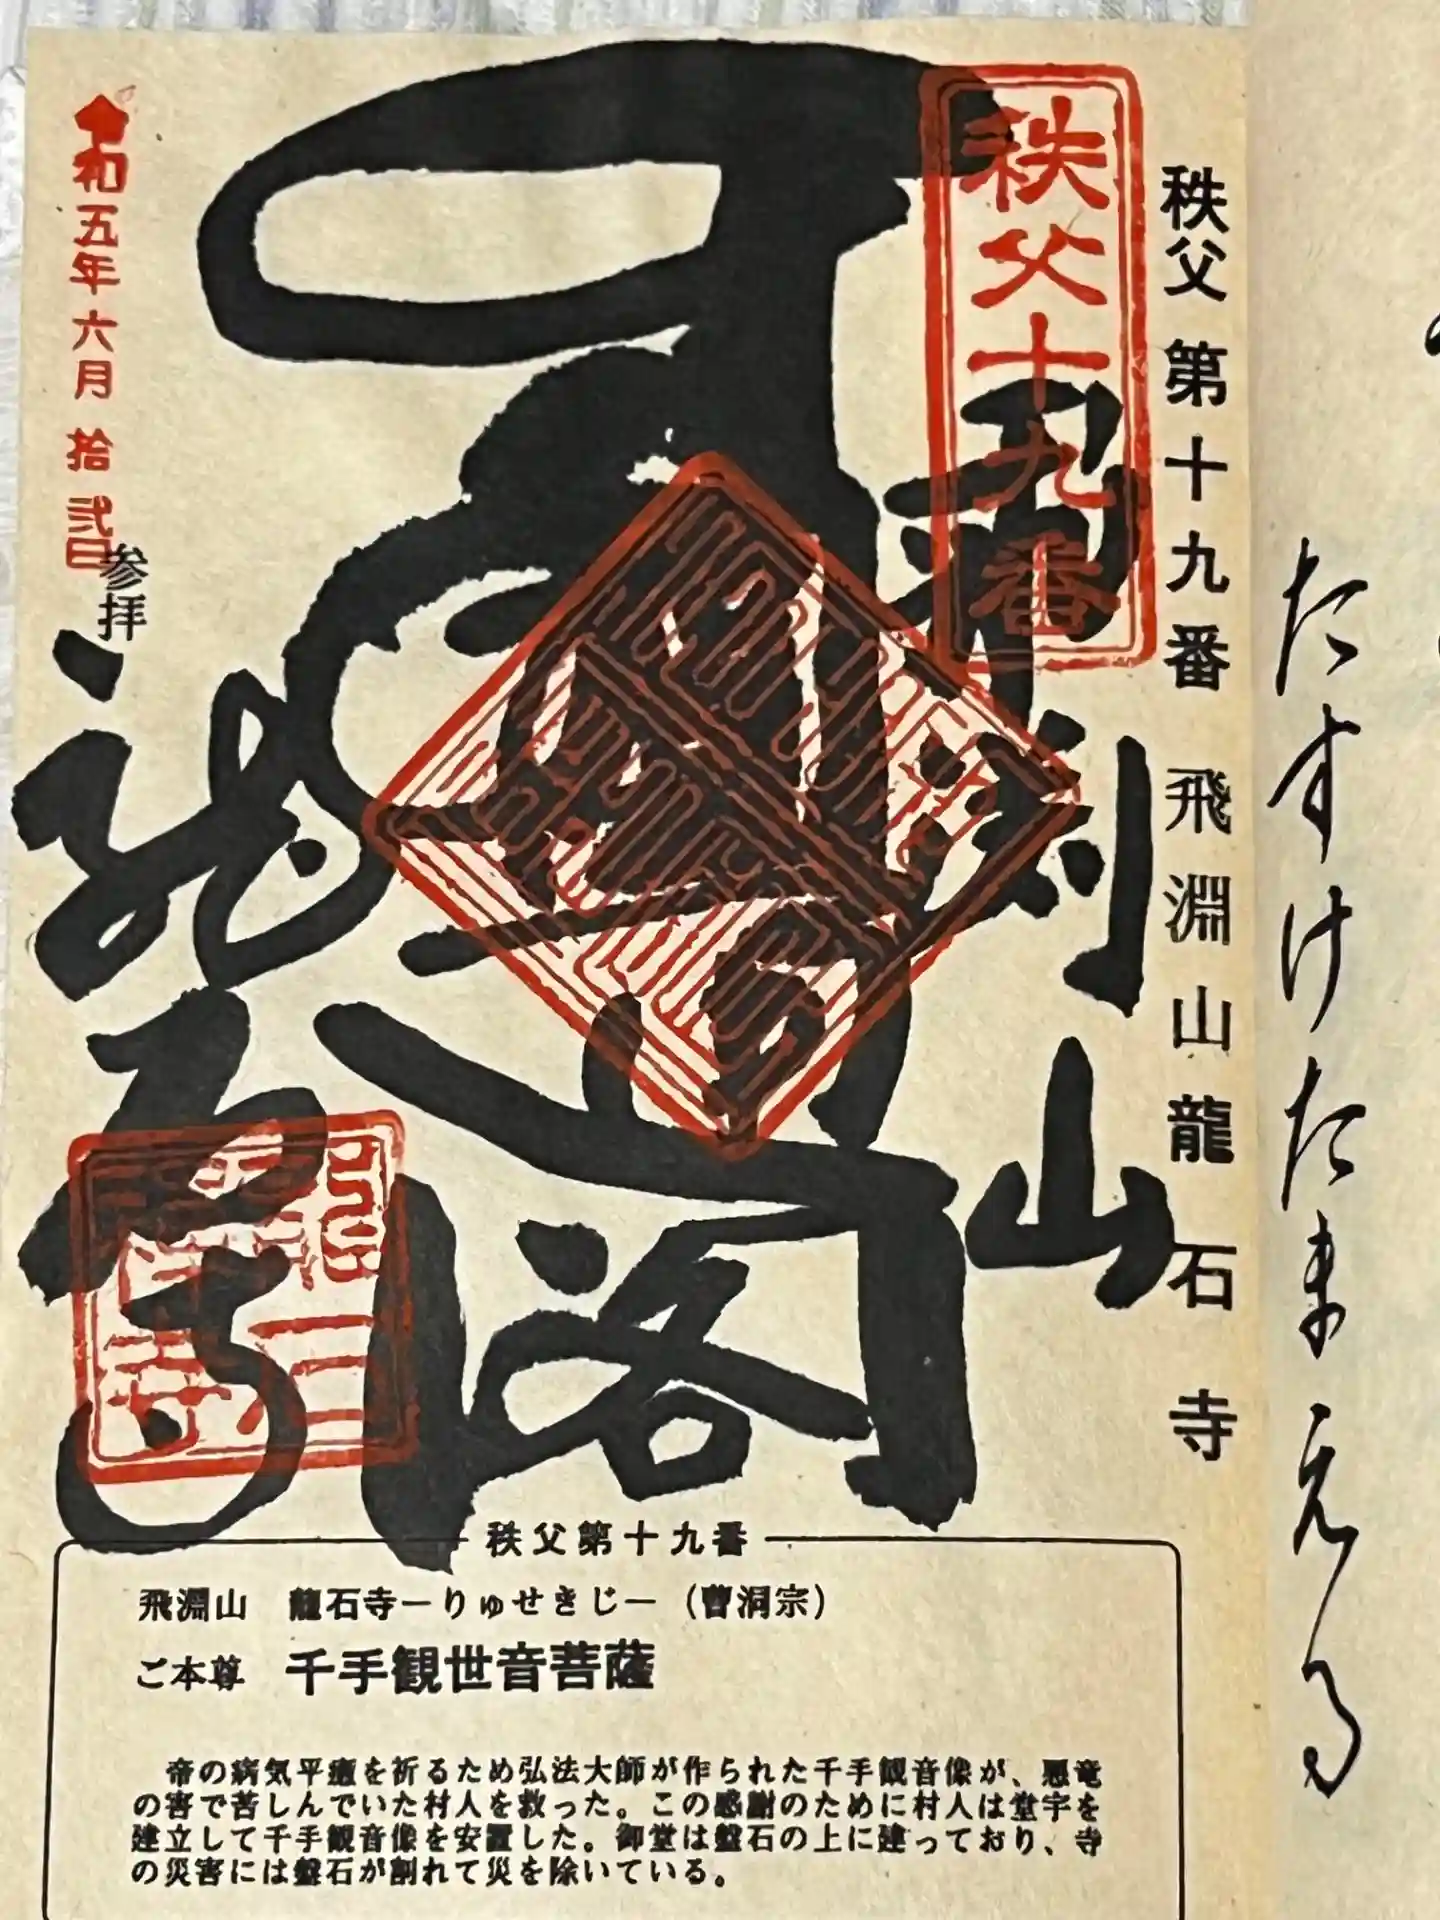 たすけたまえる
秩父第十九番 飛淵山龍石寺
秩父十九番
山
閣
寺
令和五年六月拾弐日
参拝
秩父第十九番
飛淵山 龍石寺ーりゅせきじー（曹洞宗）
ご本尊 千手観世音菩薩
帝の病気平癒を祈るため弘法大師が作られた千手観音像が、悪竜
の害で苦しんでいた村人を救った。この感謝のために村人は堂宇を
建立して千手観音像を安置した。御堂は盤石の上に建っており、寺
の災害には盤石が割れて災を除いている。